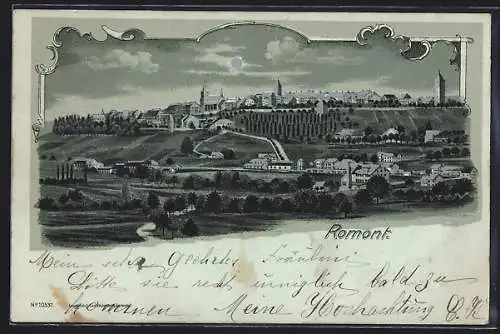 Romont.
Mein sehr Geehrtes Fräulein
Bitte sie recht inniglich bald zu
kommen Meine Hochachtung C. K.
Nº 10537